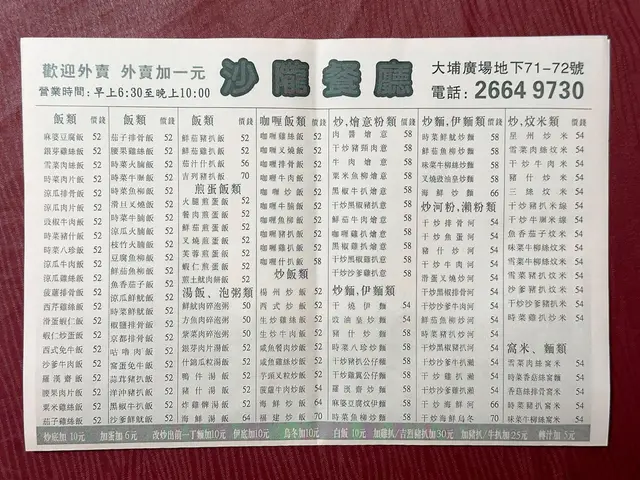 歡迎外賣 外賣加一元
營業時間:早上6:30至晚上10:00
沙隴餐廳
大埔廣場地下71-72號
電話:2664 9730
飯類 價錢
麻婆豆腐飯 52
銀芽雞絲飯 52
雪菜肉絲飯 52
時菜肉片飯 52
涼瓜排骨飯 52
涼瓜肉片飯 52
豉椒牛肉飯 52
時菜豬什飯 52
時菜八珍飯 52
涼瓜雞絲飯 52
菠蘿排骨飯 52
西芹雞絲飯 52
滑蛋蝦仁飯 52
蝦仁炒蛋飯 52
西式免牛飯 52
沙爹牛肉飯 52
羅漢齋飯 52
腰果肉片飯 52
粟米雞絲飯 52
茄子雞絲飯 52
飯類 價錢
茄子排骨飯 52
腰果雞絲飯 52
時菜火腩飯 52
時菜斬雞飯 52
時菜魚柳飯 52
滑旦叉燒飯 52
時菜牛腩飯 52
涼瓜火腩飯 52
枝竹火腩飯 52
豆腐魚柳飯 52
鮮茄魚柳飯 52
魚香茄子飯 52
涼瓜鮮魷飯 52
時菜鮮魷飯 52
椒鹽排骨飯 52
京都排骨飯 52
咕嚕肉飯 52
窩蛋免牛飯 52
蒜茸豬扒飯 52
洋沖豬扒飯 52
黑椒牛扒飯 52
沙爹鮮魷飯 52
飯類 價錢
鮮茄豬扒飯 52
鮮茄雞扒飯 52
茄汁什扒飯 56
吉列豬扒飯 70
煎蛋飯類
火腿煎蛋飯 52
餐肉煎蛋飯 52
鮮茄煎蛋飯 52
叉燒煎蛋飯 52
芙蓉煎蛋飯 52
蝦仁煎蛋飯 52
煎土魷肉餅飯 52
湯飯、泡粥類
鮮魷肉碎泡粥 50
方魚肉碎泡粥 50
紫菜肉碎泡粥 50
銀芽肉片湯飯 52
什錦瓜粒湯飯 52
鴨件湯飯 52
豬什湯飯 52
炸雞髀湯飯 52
海鮮湯飯 64
咖喱飯類 價錢
咖喱雞絲飯 52
咖喱叉燒飯 52
咖喱排骨飯 52
咖喱雞球飯 52
咖喱炒飯 52
咖喱牛腩飯 52
咖喱魚柳飯 52
咖喱牛肉飯 52
咖喱豬扒飯 52
咖喱雞扒飯 52
炒飯類
楊州炒飯 52
西式炒飯 52
生炒雞絲飯 52
生炒牛肉飯 52
咸魚餐肉炒飯 52
咸魚雞絲炒飯 52
芋頭叉粒炒飯 52
菠蘿牛肉炒飯 54
海鮮炒飯 64
福建炒飯 70
炒,燴意粉類 價錢
肉醬燴意 58
干炒豬頸肉意 58
牛肉燴意 58
粟米魚柳燴意 58
黑椒牛扒燴意 58
干炒黑椒豬扒意 58
鮮茄牛肉燴意 58
干炒沙爹牛扒意 58
黑椒雞扒燴意 58
干炒黑椒雞扒意 58
干炒沙爹雞扒意 58
炒麵,伊麵類
干燒伊麵 54
豉油皇炒麵 54
豬什炒麵 54
時菜八珍炒麵 58
干炒豬扒公仔麵 58
干炒雞翼公仔麵 58
羅漢齋炒麵 58
麻婆豆腐炆伊麵 58
時菜魚柳炒麵 58
炒麵,伊麵類 價錢
時菜鮮魷炒麵 58
鮮茄魚柳炒麵 58
味菜牛柳絲炒麵 58
叉燒豉油皇炒麵 58
海鮮炒麵 66
炒河粉,瀨粉類
干炒排骨河 54
干炒魚蛋河 54
豬什炒河 54
干炒牛肉河 54
干炒雪菜雞絲河 54
干炒黑椒排骨河 54
干炒黑椒牛柳河 54
鮮茄魚柳炒河 54
干炒黑椒豬扒河 54
干炒沙爹牛扒瀨 54
干炒雞扒瀨 54
干炒沙爹豬扒瀨 54
干炒海鮮河 66
干炒海鮮烏冬 70
炒,炆米類 價錢
星州炒米 54
雪菜肉絲炆米 54
干炒牛肉米 54
雪菜火鴨絲炆米 54
三絲炆米 54
干炒豬扒米線 54
干炒牛崧米線 54
魚香茄子炆米 54
味菜牛柳絲炆米 54
雪菜雞絲炆米 54
雪菜豬扒炆米 54
沙爹豬扒炆米 54
干炒沙爹豬扒米 54
時菜雞扒炒米 54
窩米、麵類
雪菜肉絲窩麵 54
時菜香菇絲窩麵 54
香菇絲排骨窩麵 54
時菜窩米 54
味菜肉絲窩米 54
味菜牛柳絲窩米 54
炒底加10元 加蛋加6元 改炒出前一丁麵加10元 伊底加10元 烏冬加10元 白飯10元 加雞扒/吉烈豬扒加30元 加豬扒/牛扒加25元 轉汁加5元